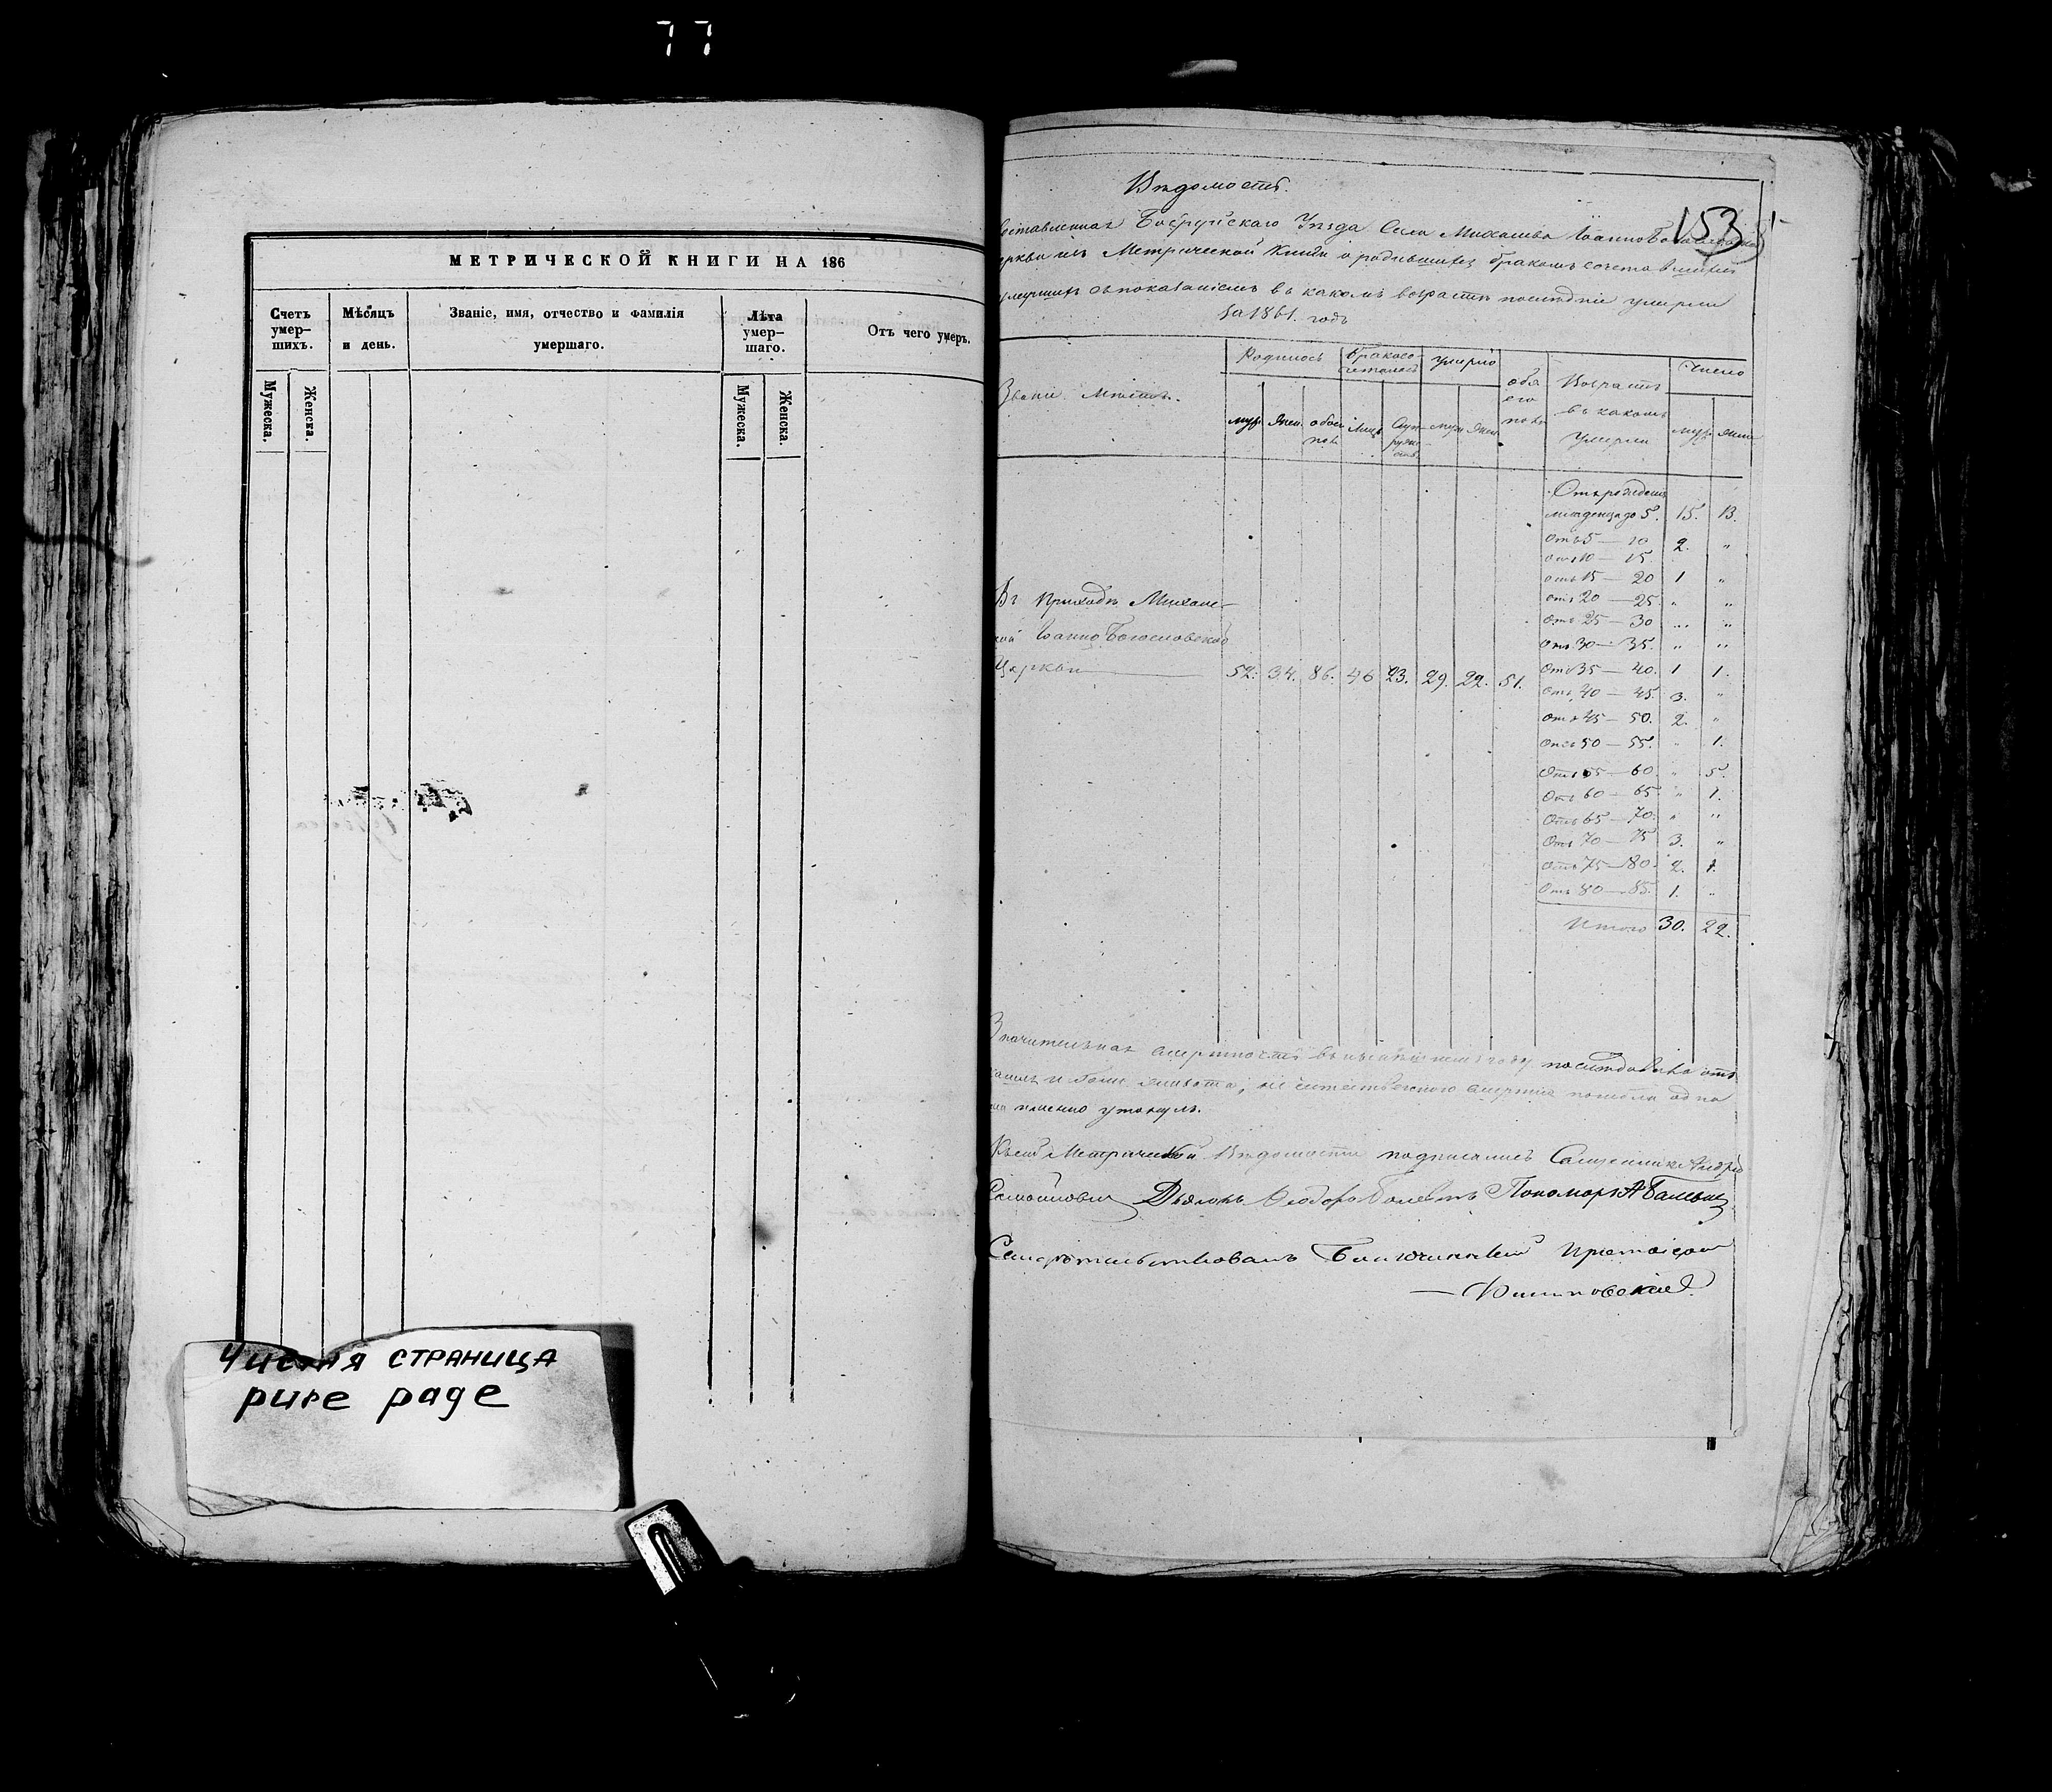 77
МЕТРИЧЕСКОЙ КНИГИ НА 186
Счетъ умер-шихъ.
Мѣсяцъ и день.
Званіе, имя, отчество и фамилія умершаго.
Лѣта умер-шаго.
Отъ чего умеръ.
Мужеска.
Женска.
Мужеска.
Женска.
Чистая страница
pure page
153
Вѣдомость.
ставленная Бобруйскаго Уѣзда Села Михалева Іоанно Богословской
еркви изъ Метрической Книги о родившихся бракомъ сочетавшихся
умершихъ съ показаніемъ въ какомъ возрастѣ послѣдніе умерли
за 1861. годъ
Родилось
Бракосо-четалось
Умерло
обоего пола
Возрастъ въ какомъ умерли
Число
Званіе мѣстъ.
муж. жен. обоего пола Лицъ Супружествъ муж. жен.
муж. жен.
Отъ рожденія
младенца до 5. 15. 13.
отъ 5 — 10 2. "
отъ 10 — 15.
отъ 15 — 20 1 "
отъ 20 — 25. " "
отъ 25 — 30 " "
отъ 30 — 35. " "
Въ приходѣ Михале-
кой Іоанно Богословской
Церкви — 52. 34. 86. 46 23. 29. 22. 51.
отъ 35 — 40. 1 1.
отъ 40 — 45. 3. "
отъ 45 — 50. 2. "
отъ 50 — 55. " 1.
отъ 55 — 60. " 5.
отъ 60 — 65 " 1.
отъ 65 — 70. " "
отъ 70 — 75 3. "
отъ 75 — 80. 2. 1.
отъ 80 — 85. 1. "
Итого 30. 22.
Значительная смертность въ нынѣшнемъ году послѣдовала отъ
и боли живота, не естественною смертію погибла одна
именно утонулъ.
Къ сей Метрической Вѣдомости подписались Священникъ Андрей
Дьяконъ Ѳеодоръ Пономарь А
Свидѣтельствовалъ Благочинный Протоіерей